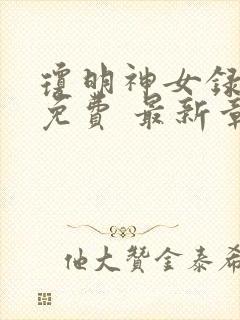 瓊明神女録
免费 最新章
他大贊金泰希